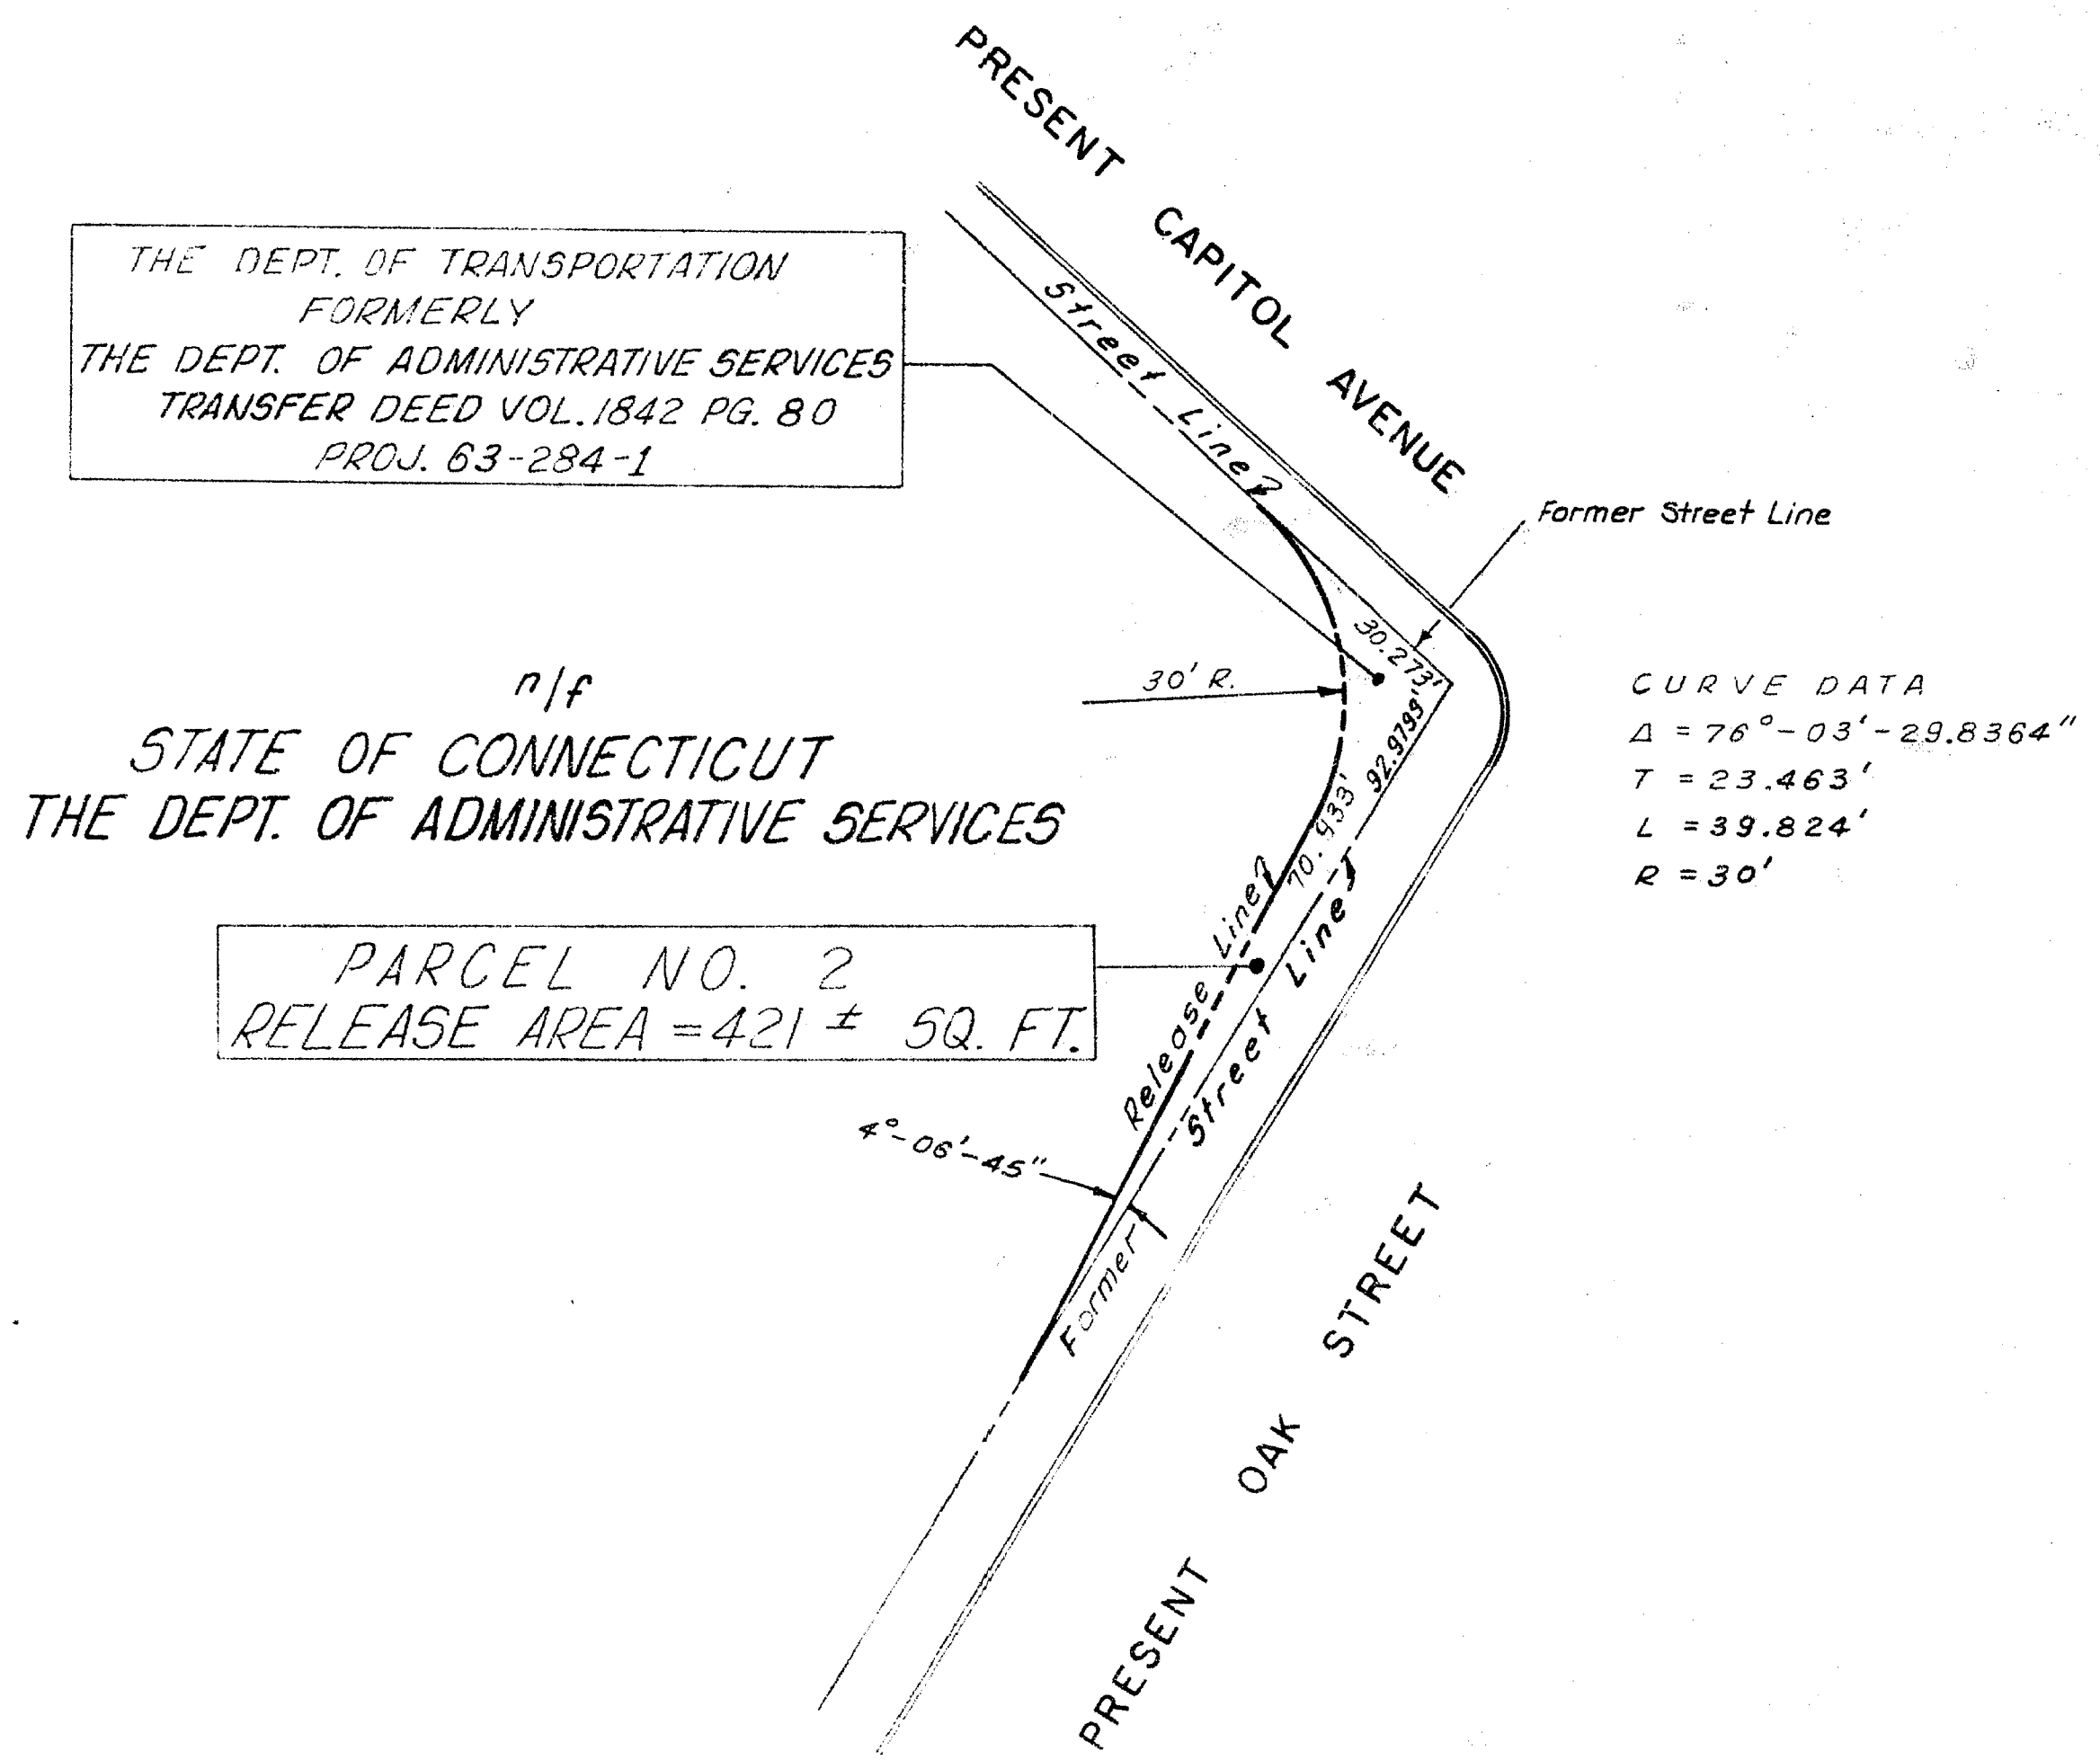 PRESENT CAPITOL AVENUE
THE DEPT. OF TRANSPORTATION
FORMERLY
THE DEPT. OF ADMINISTRATIVE SERVICES
TRANSFER DEED VOL. 1842 PG. 80
PROJ. 63-284-1
Street Line
Former Street Line
30.273'
30' R.
92.9799'
70.933'
n/f
STATE OF CONNECTICUT
THE DEPT. OF ADMINISTRATIVE SERVICES
CURVE DATA
Δ = 76°-03'-29.8364"
T = 23.463'
L = 39.824'
R = 30'
PARCEL NO. 2
RELEASE AREA = 421 ± SQ. FT.
Release Line
Former Street Line
4°-06'-45"
PRESENT OAK STREET